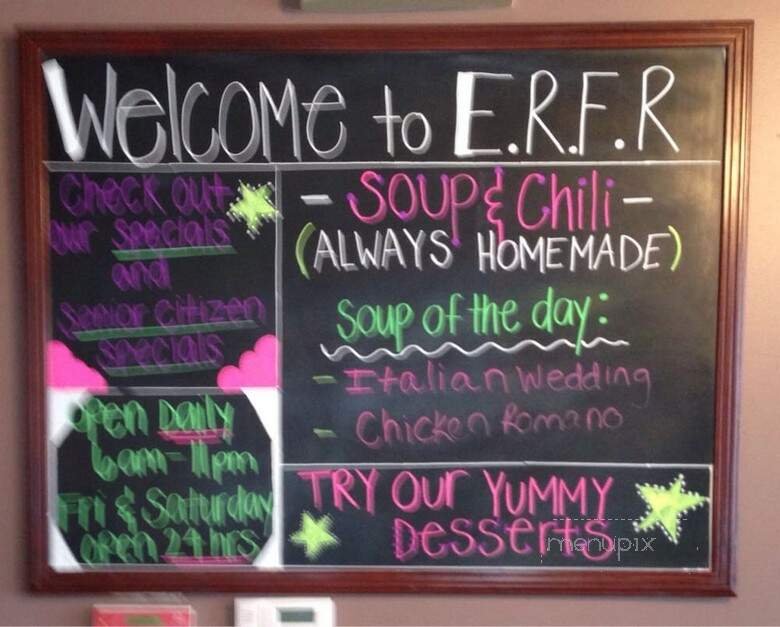 Welcome to E.R.F.R
Check out
our specials
and
Senior Citizen
Specials
Open Daily
6am-11pm
Fri & Saturday
open 24 hrs
- Soup & Chili -
(ALWAYS HOMEMADE)
Soup of the day:
- Italian Wedding
- Chicken Romano
TRY Our YUMMY
Desserts
menupix